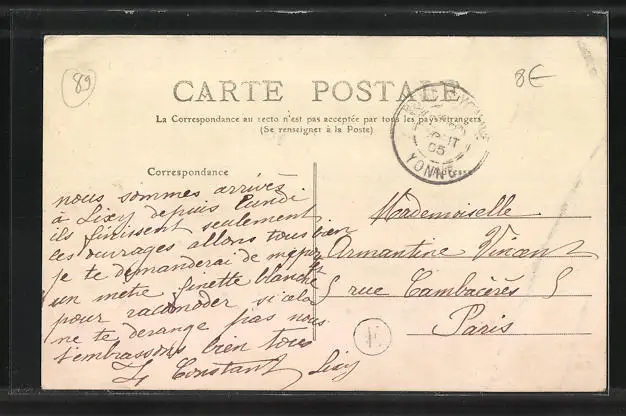 89
8€
CARTE POSTALE
La Correspondance au recto n'est pas acceptée par tous les pays étrangers
(Se renseigner à la Poste)
YONNE
05
Correspondance
Adresse
nous sommes arrivés
à Lixy depuis lundi
ils finissent seulement
les ouvrages allons tous bien
je te demanderai de me
un metre finette blanche
pour racomoder si cela
ne te derange pas nous
t'embrassons bien tous
Constant Lixy
Mademoiselle
Armantine Vincent
5 rue Cambacérès 5
Paris